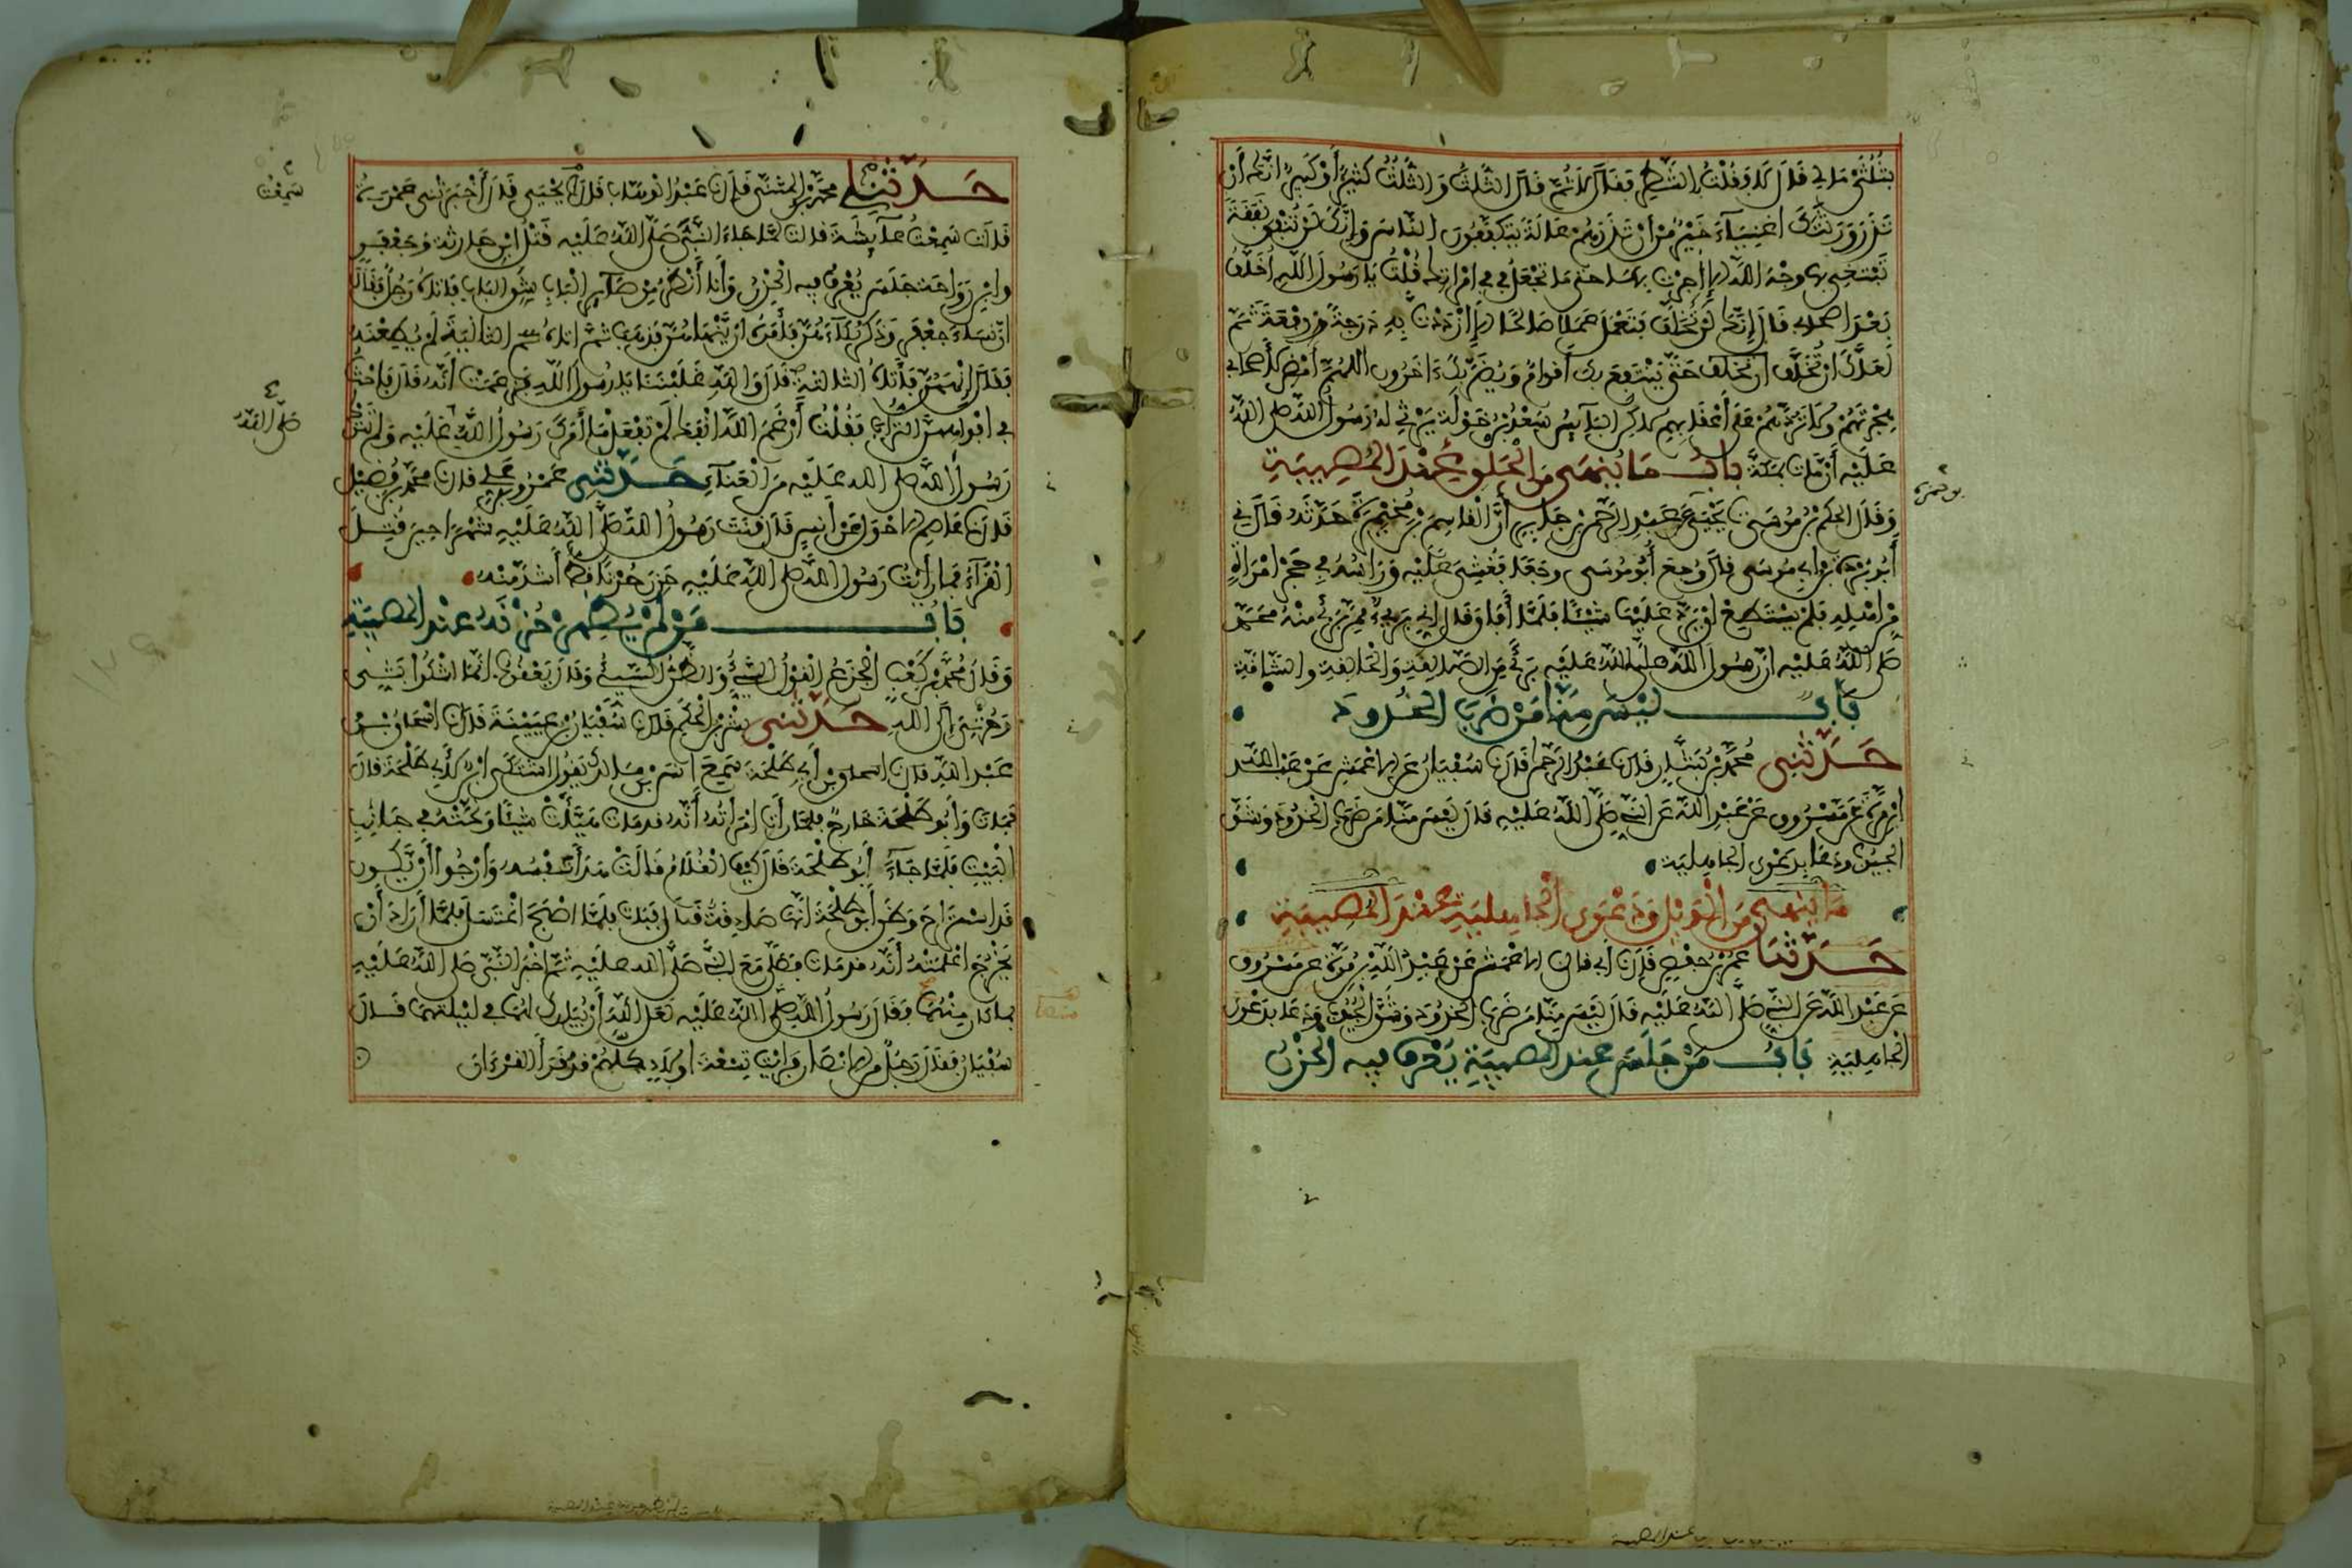 بثلثي مالي قال لا وقلت بالشطر فقال لا ثم قال الثلث والثلث كثير أو كبير انك أن
تذر ورثتك اغنياء خير من أن تذرهم عالة يتكففون الناس وإنك لن تنفق نفقة
تبتغي بها وجه الله الا اجرت بها حتى ما تجعل في في امراتك قلت يا رسول الله أخلف
بعد اصحابي قال إنك لن تخلف فتعمل عملا صالحا الا ازددت به درجة ورفعة ثم
لعلك ان تخلف حتى ينتفع بك أقوام ويضر بك ءاخرون اللهم أمض لأصحابي
هجرتهم ولا تردهم على أعقابهم لاكن البايس سعد بن خولة يرثي له رسول الله صلى الله
عليه أن مات بمكة باب ما ينهى من الحلق عند المصيبة
وقال الحكم بن موسى يحيى عبد الرحمن بن جابر أن القاسم بن مخيمرة حدثه قال ني
أبو بردة بن أبي موسى قال وجع أبو موسى وجعا فغشي عليه وراسه في حجر امراة
من اهله فلم يستطع ان يرد عليها شيئا فلما أفاق قال اني بريء ممن برئ منه محمد
صلى الله عليه ان رسول الله صلى الله عليه برئ من الصالقة والحالقة والشاقة
باب ليس منا من ضرب الخدود
حدثني محمد بن بشار قال عبد الرحمن قال سفيان عن الاعمش عن عبد الله
ابن مرة عن مسروق عن عبد الله عن النبي صلى الله عليه قال ليس منا من ضرب الخدود وشق
الجيوب ودعا بدعوى الجاهلية
ما ينهى من الويل ودعوى الجاهلية عند المصيبة
حدثنا عمر بن حفص قال أبي قال الاعمش عن عبد الله بن مرة عن مسروق
عن عبد الله عن النبي صلى الله عليه قال ليس منا من ضرب الخدود وشق الجيوب ودعا بدعوى
الجاهلية باب من جلس عند المصيبة يعرف فيه الحزن
بن حمزة
حدثنا محمد بن المثنى قال عبد الوهاب قال يحيى قال أخبرتني عمرة
قالت سمعت عائشة قالت لما جاء النبي صلى الله عليه قتل ابن حارثة وجعفر
وابن رواحة جلس يعرف فيه الحزن وأنا أنظر من صائر الباب شق الباب فاتاه رجل فقال
ان نساء جعفر وذكر بكاءهن فأمره ان ينهاهن فذهب ثم اتاه الثانية لم يطعنه
فقال إنههن فأتاه الثالثة قال والله غلبننا يا رسول الله فزعمت أنه قال فاحث
في افواههن التراب فقلت أرغم الله انفك لم تفعل ما أمرك رسول الله عليه ولم تترك
رسول الله صلى الله عليه من العناء حدثني عمرو بن علي قال محمد بن فضيل
قال عاصم الاحول عن أنس قال قنت رسول الله صلى الله عليه شهرا حين قتل
القراء فما رأيت رسول الله صلى الله عليه حزن حزنا قط أشد منه
باب من لم يظهر حزنه عند المصيبة
وقال محمد بن كعب الجزع القول السيء والظن السيئ وقال يعقوب إنما اشكوا بثي
وحزني إلى الله حدثني بشر بن الحكم قال سفيان بن عيينة قال اسحاق بن
عبد الله قال اسحاق بن أبي طلحة سمع انس بن مالك يقول اشتكى ابن لأبي طلحة قال
فمات وأبو طلحة خارج فلما رأت امرأته أنه قد مات هيأت شيئا ونحته في جانب
البيت فلما جاء أبو طلحة قال كيف الغلام قالت هدأت نفسه وأرجوا أن يكون
قد استراح وظن أبو طلحة انها صادقة قال فبات فلما اصبح اغتسل فلما أراد أن
يخرج اعلمته أنه قد مات فصلى مع النبي صلى الله عليه ثم أخبر النبي صلى الله عليه
بما كان منهما فقال رسول الله صلى الله عليه لعل الله أن يبارك لهما في ليلتهما قال
سفيان فقال رجل من الانصار فرايت تسعة اولاد كلهم قد قرأ القرءان
سمعت
صلى الله
منها